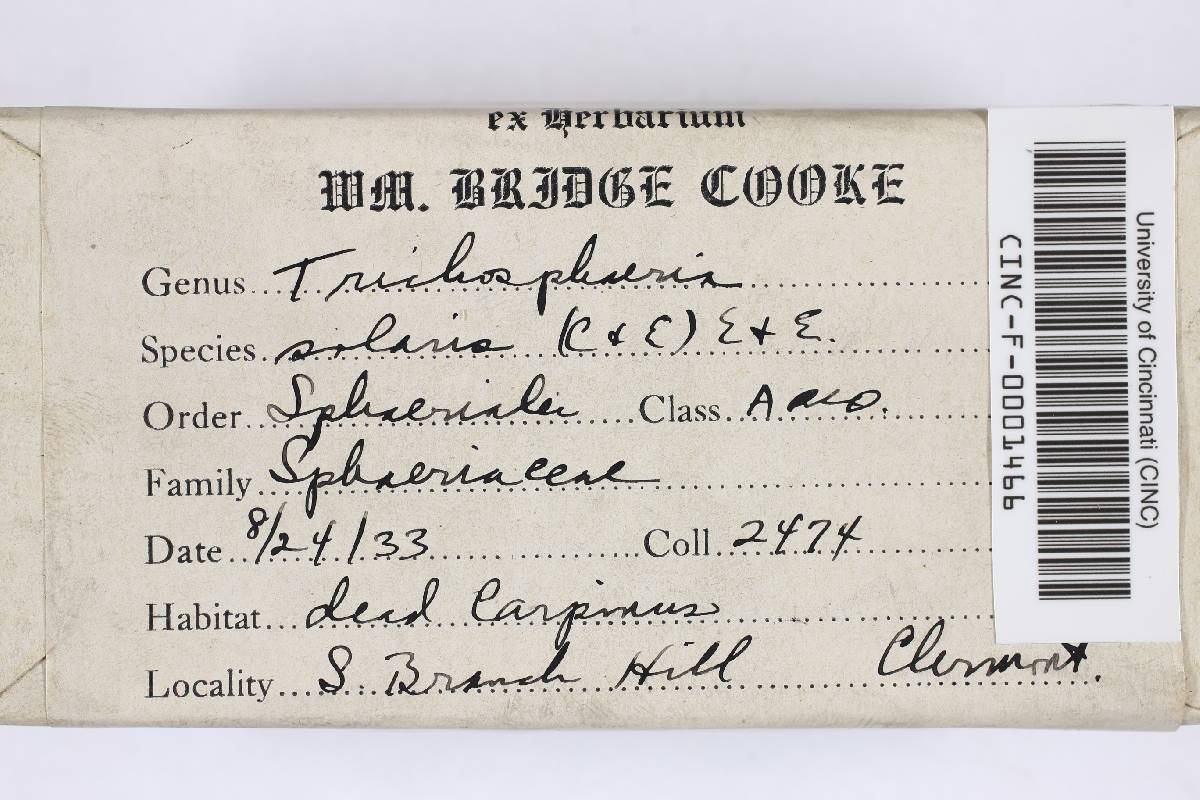 ex Herbarium
WM. BRIDGE COOKE
Genus Trichosphaeria
Species solaris (C & E) E & E.
Order Sphaeriales Class Asco.
Family Sphaeriaceae
Date 8/24/33 Coll. 2474
Habitat dead Carpinus
Locality S. Branch Hill Clermont.
University of Cincinnati (CINC)
CINC-F-0001466